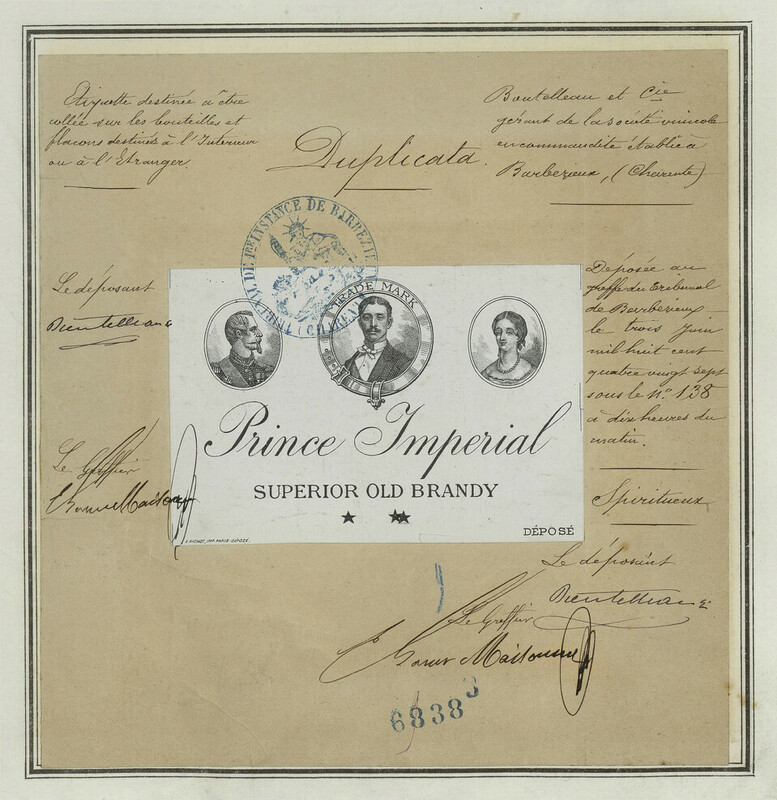 Etiquette destinée à être
collée sur les bouteilles et
flacons destinés à l'Interieur
ou à l'Etranger.
Duplicata.
Boutelleau et Cie
gérant de la société vinicole
en commandite établie à
Barbezieux, (Charente)
TRIBUNAL DE 1RE INSTANCE DE BARBEZIEUX
(CHARENTE)
Le déposant
Boutelleau
Le Greffier
TRADE MARK
Prince Imperial
SUPERIOR OLD BRANDY
DÉPOSÉ
Déposée au
greffe du Tribunal
de Barbezieux
le trois Juin
mil huit cent
quatre vingt sept
sous le n° 138
à dix heures du
matin.
Spiritueux
Le déposant
Boutelleau
Le Greffier
6838
3